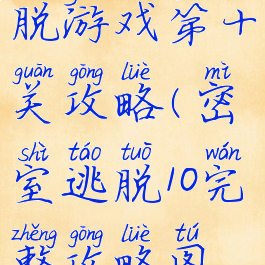 脱游戏第十
guān gōng lüè mì
关攻略(密
shì táo tuō wán
室逃脱10完
zhěng gōng lüè tú
整攻略图